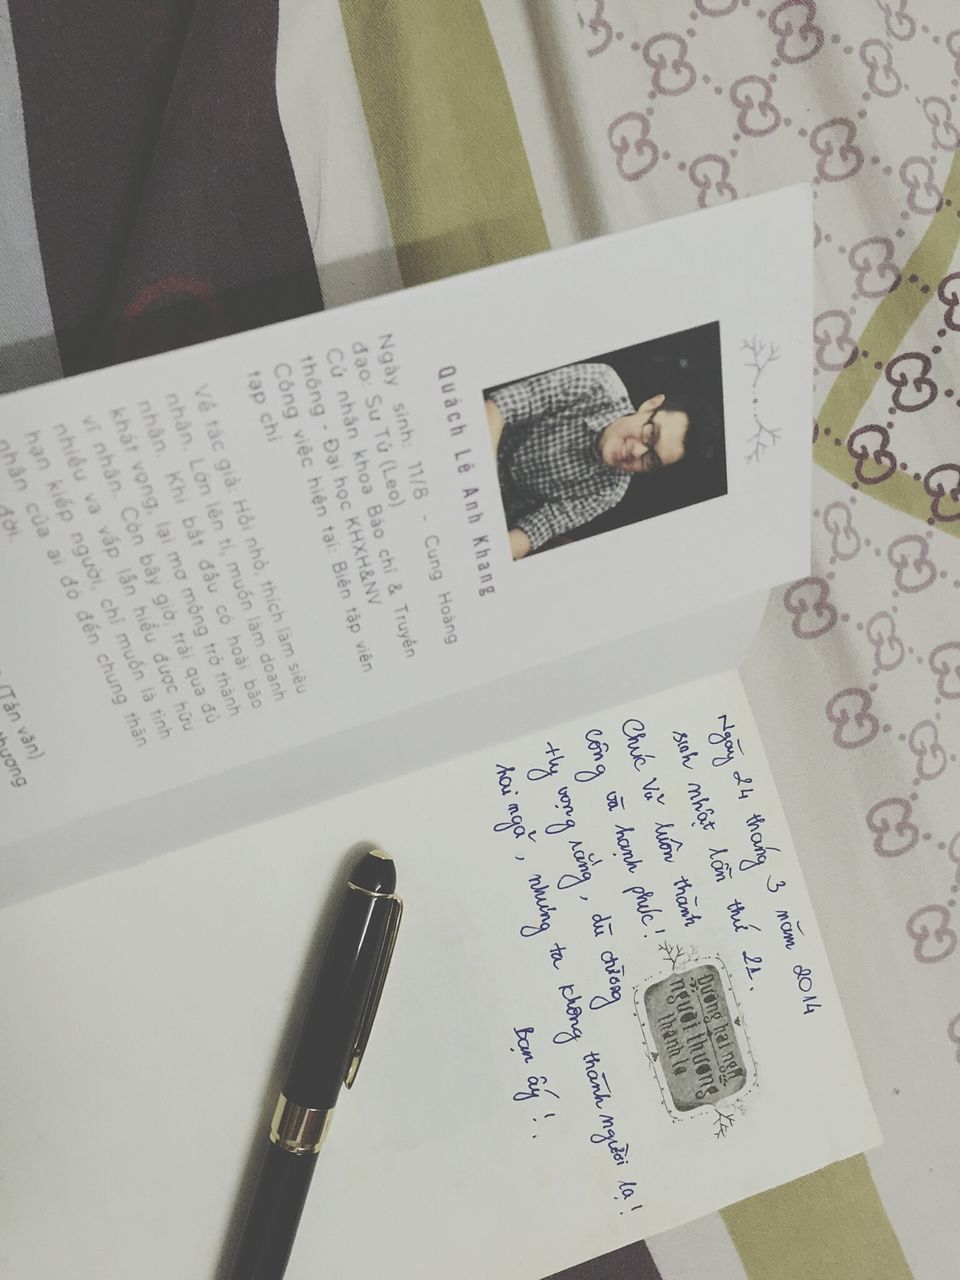 Quách Lê Anh Khang
Ngày sinh: 11/8 - Cung Hoàng
đạo: Sư Tử (Leo)
Cử nhân khoa Báo chí & Truyền
thông - Đại học KHXH&NV
Công việc hiện tại: Biên tập viên
tạp chí
Về tác giả: Hồi nhỏ, thích làm siêu
nhân. Lớn lên tí, muốn làm doanh
nhân. Khi bắt đầu có hoài bão
khát vọng, lại mơ mộng trở thành
vĩ nhân. Còn bây giờ, trải qua đủ
nhiều va vấp lẫn hiểu được hữu
hạn kiếp người, chỉ muốn là tình
nhân của ai đó đến chung thân
đời.
(Tản văn)
thương
Ngày 24 tháng 3 năm 2014
sinh nhật lần thứ 21.
Chúc Vũ luôn thành
công và hạnh phúc!
Hy vọng rằng, dù đường thành người lạ!
hai ngả, nhưng ta không
bạn ấy!.
Đường hai ngả
người thương
thành lạ